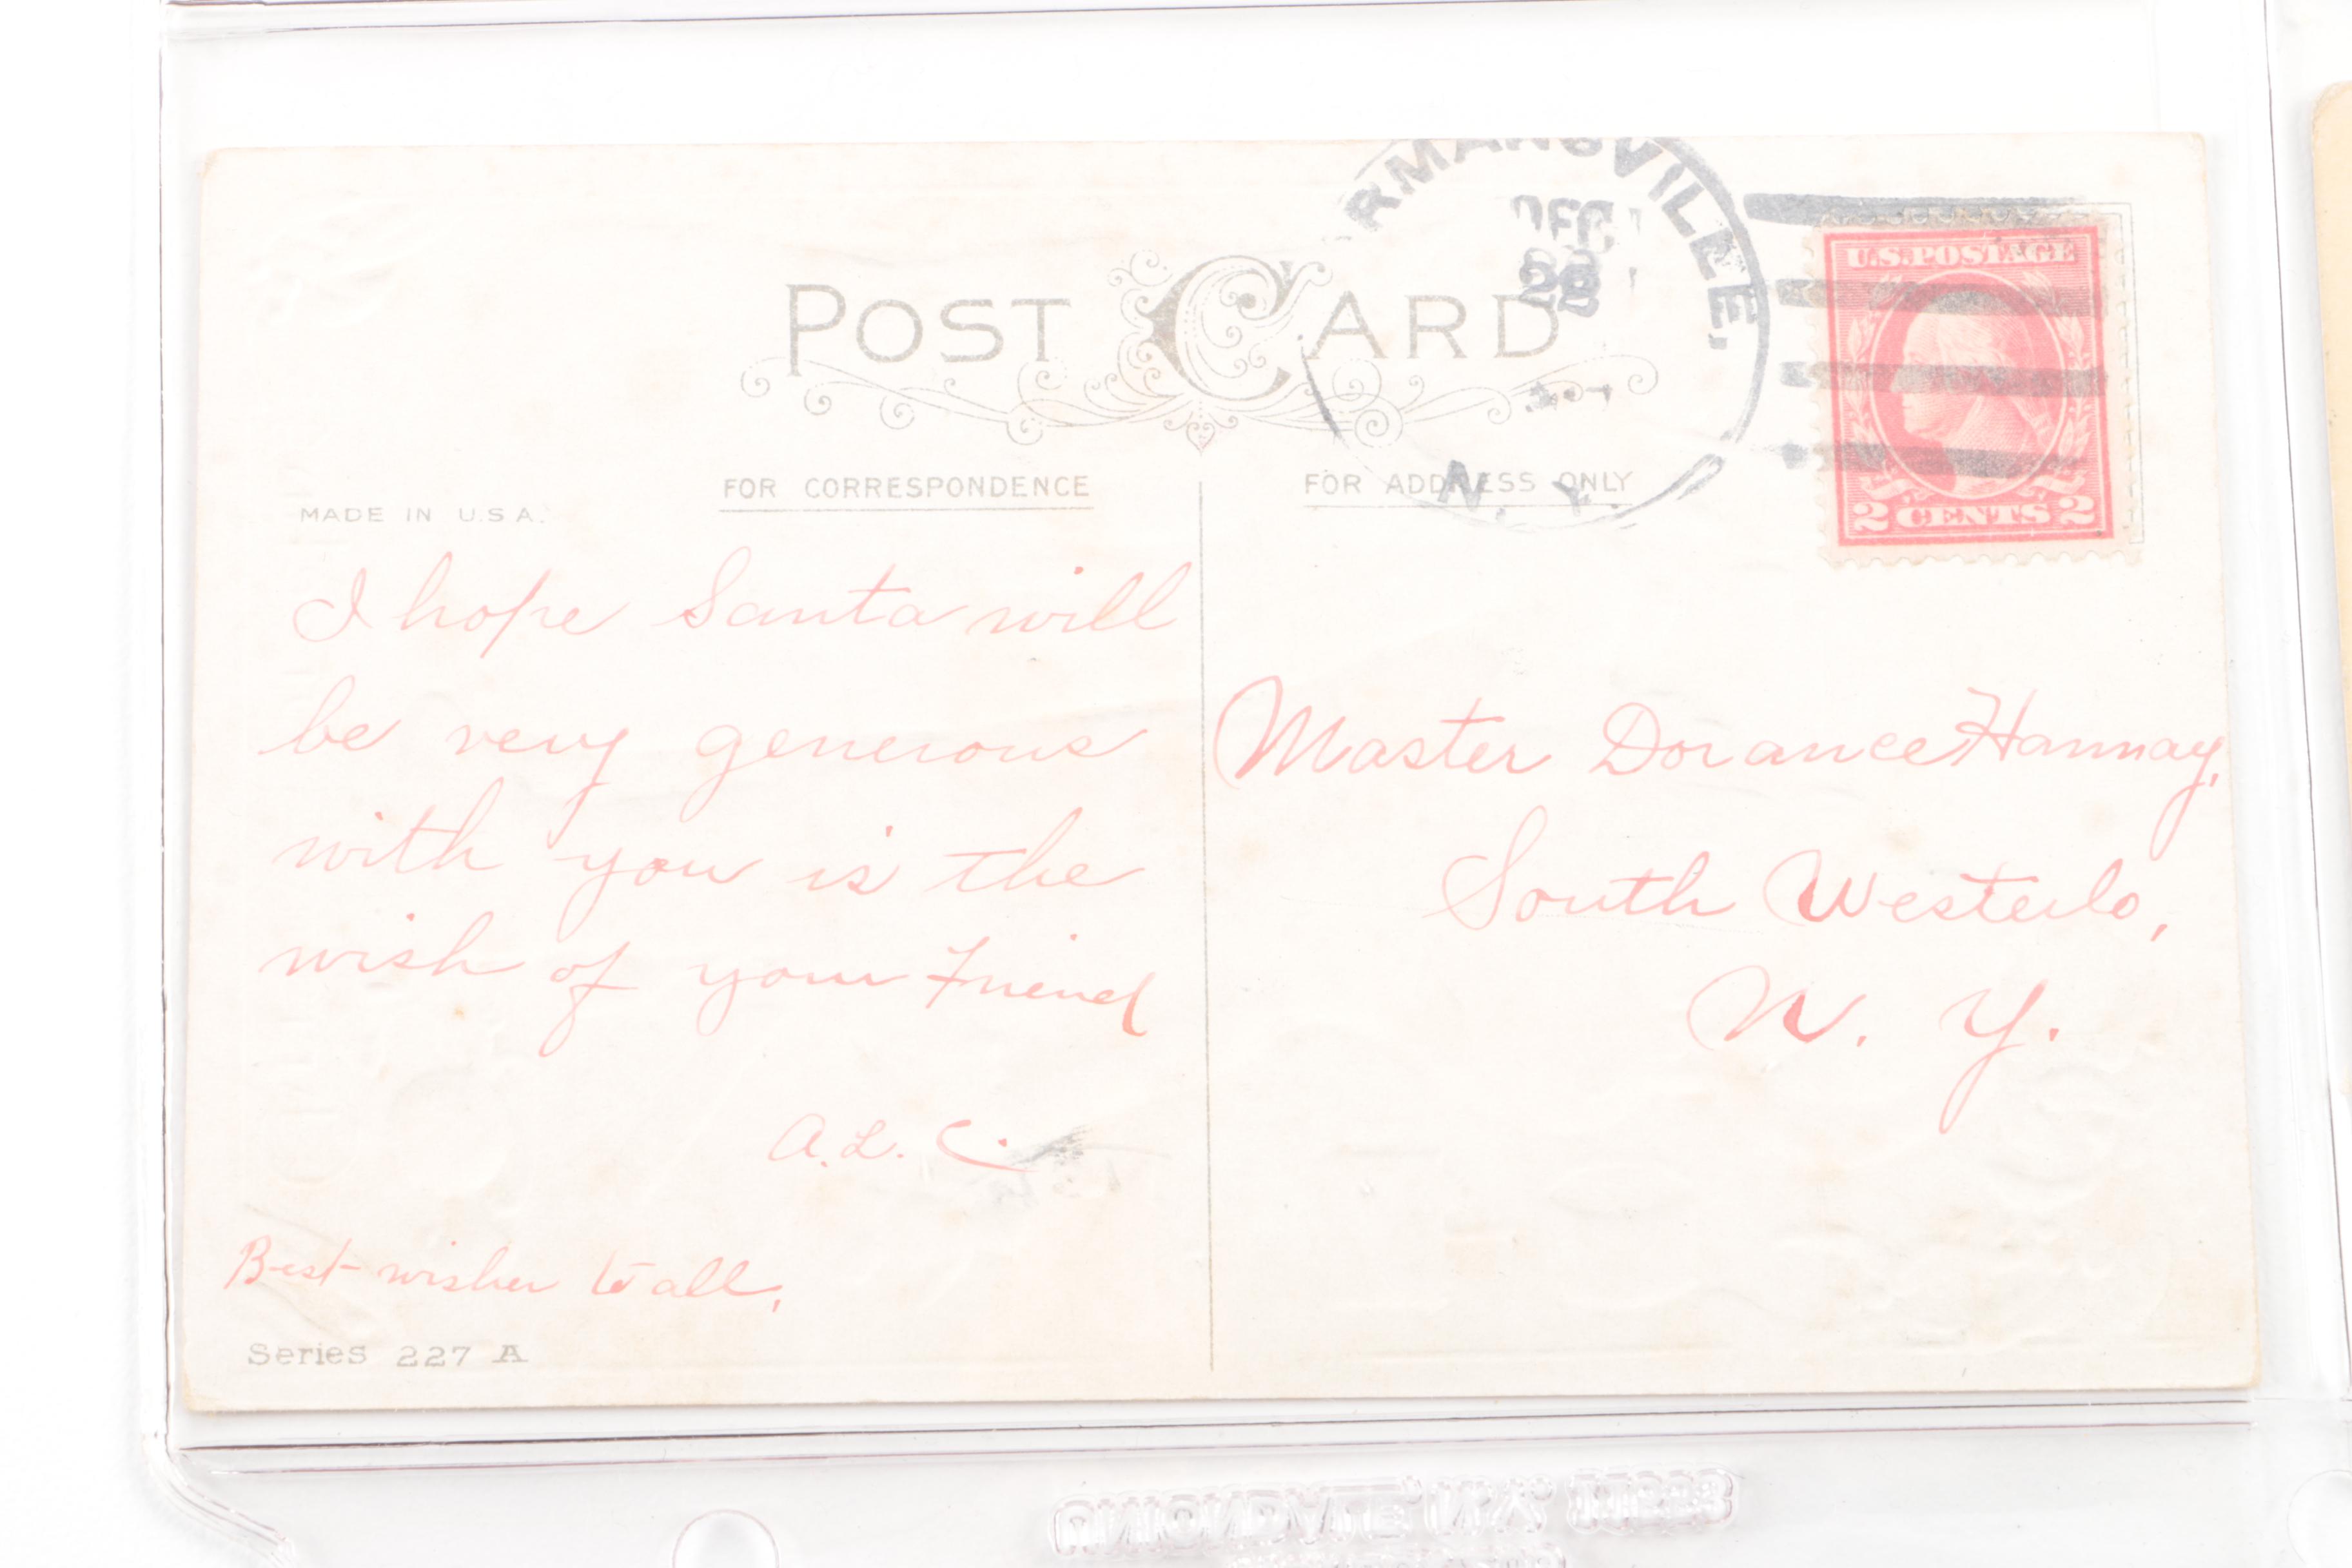 RMANSVILLE,
DEC
22
N. Y.
U.S. POSTAGE
2 CENTS 2
POST CARD
FOR CORRESPONDENCE
MADE IN U.S.A.
I hope Santa will
be very generous
with you is the
wish of your Friend
A. L. C.
Best wishes to all.
Series 227 A
FOR ADDRESS ONLY
Master Dorance Hannay,
South Westerlo,
N. Y.